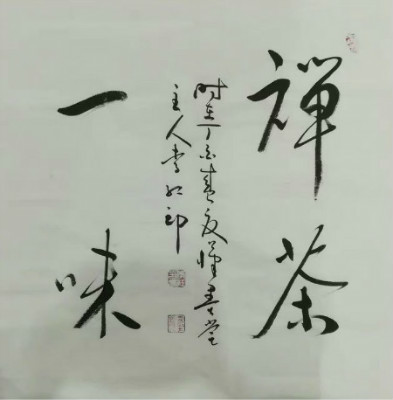 禅茶
一味
时在丁酉春友惺
主人李红印